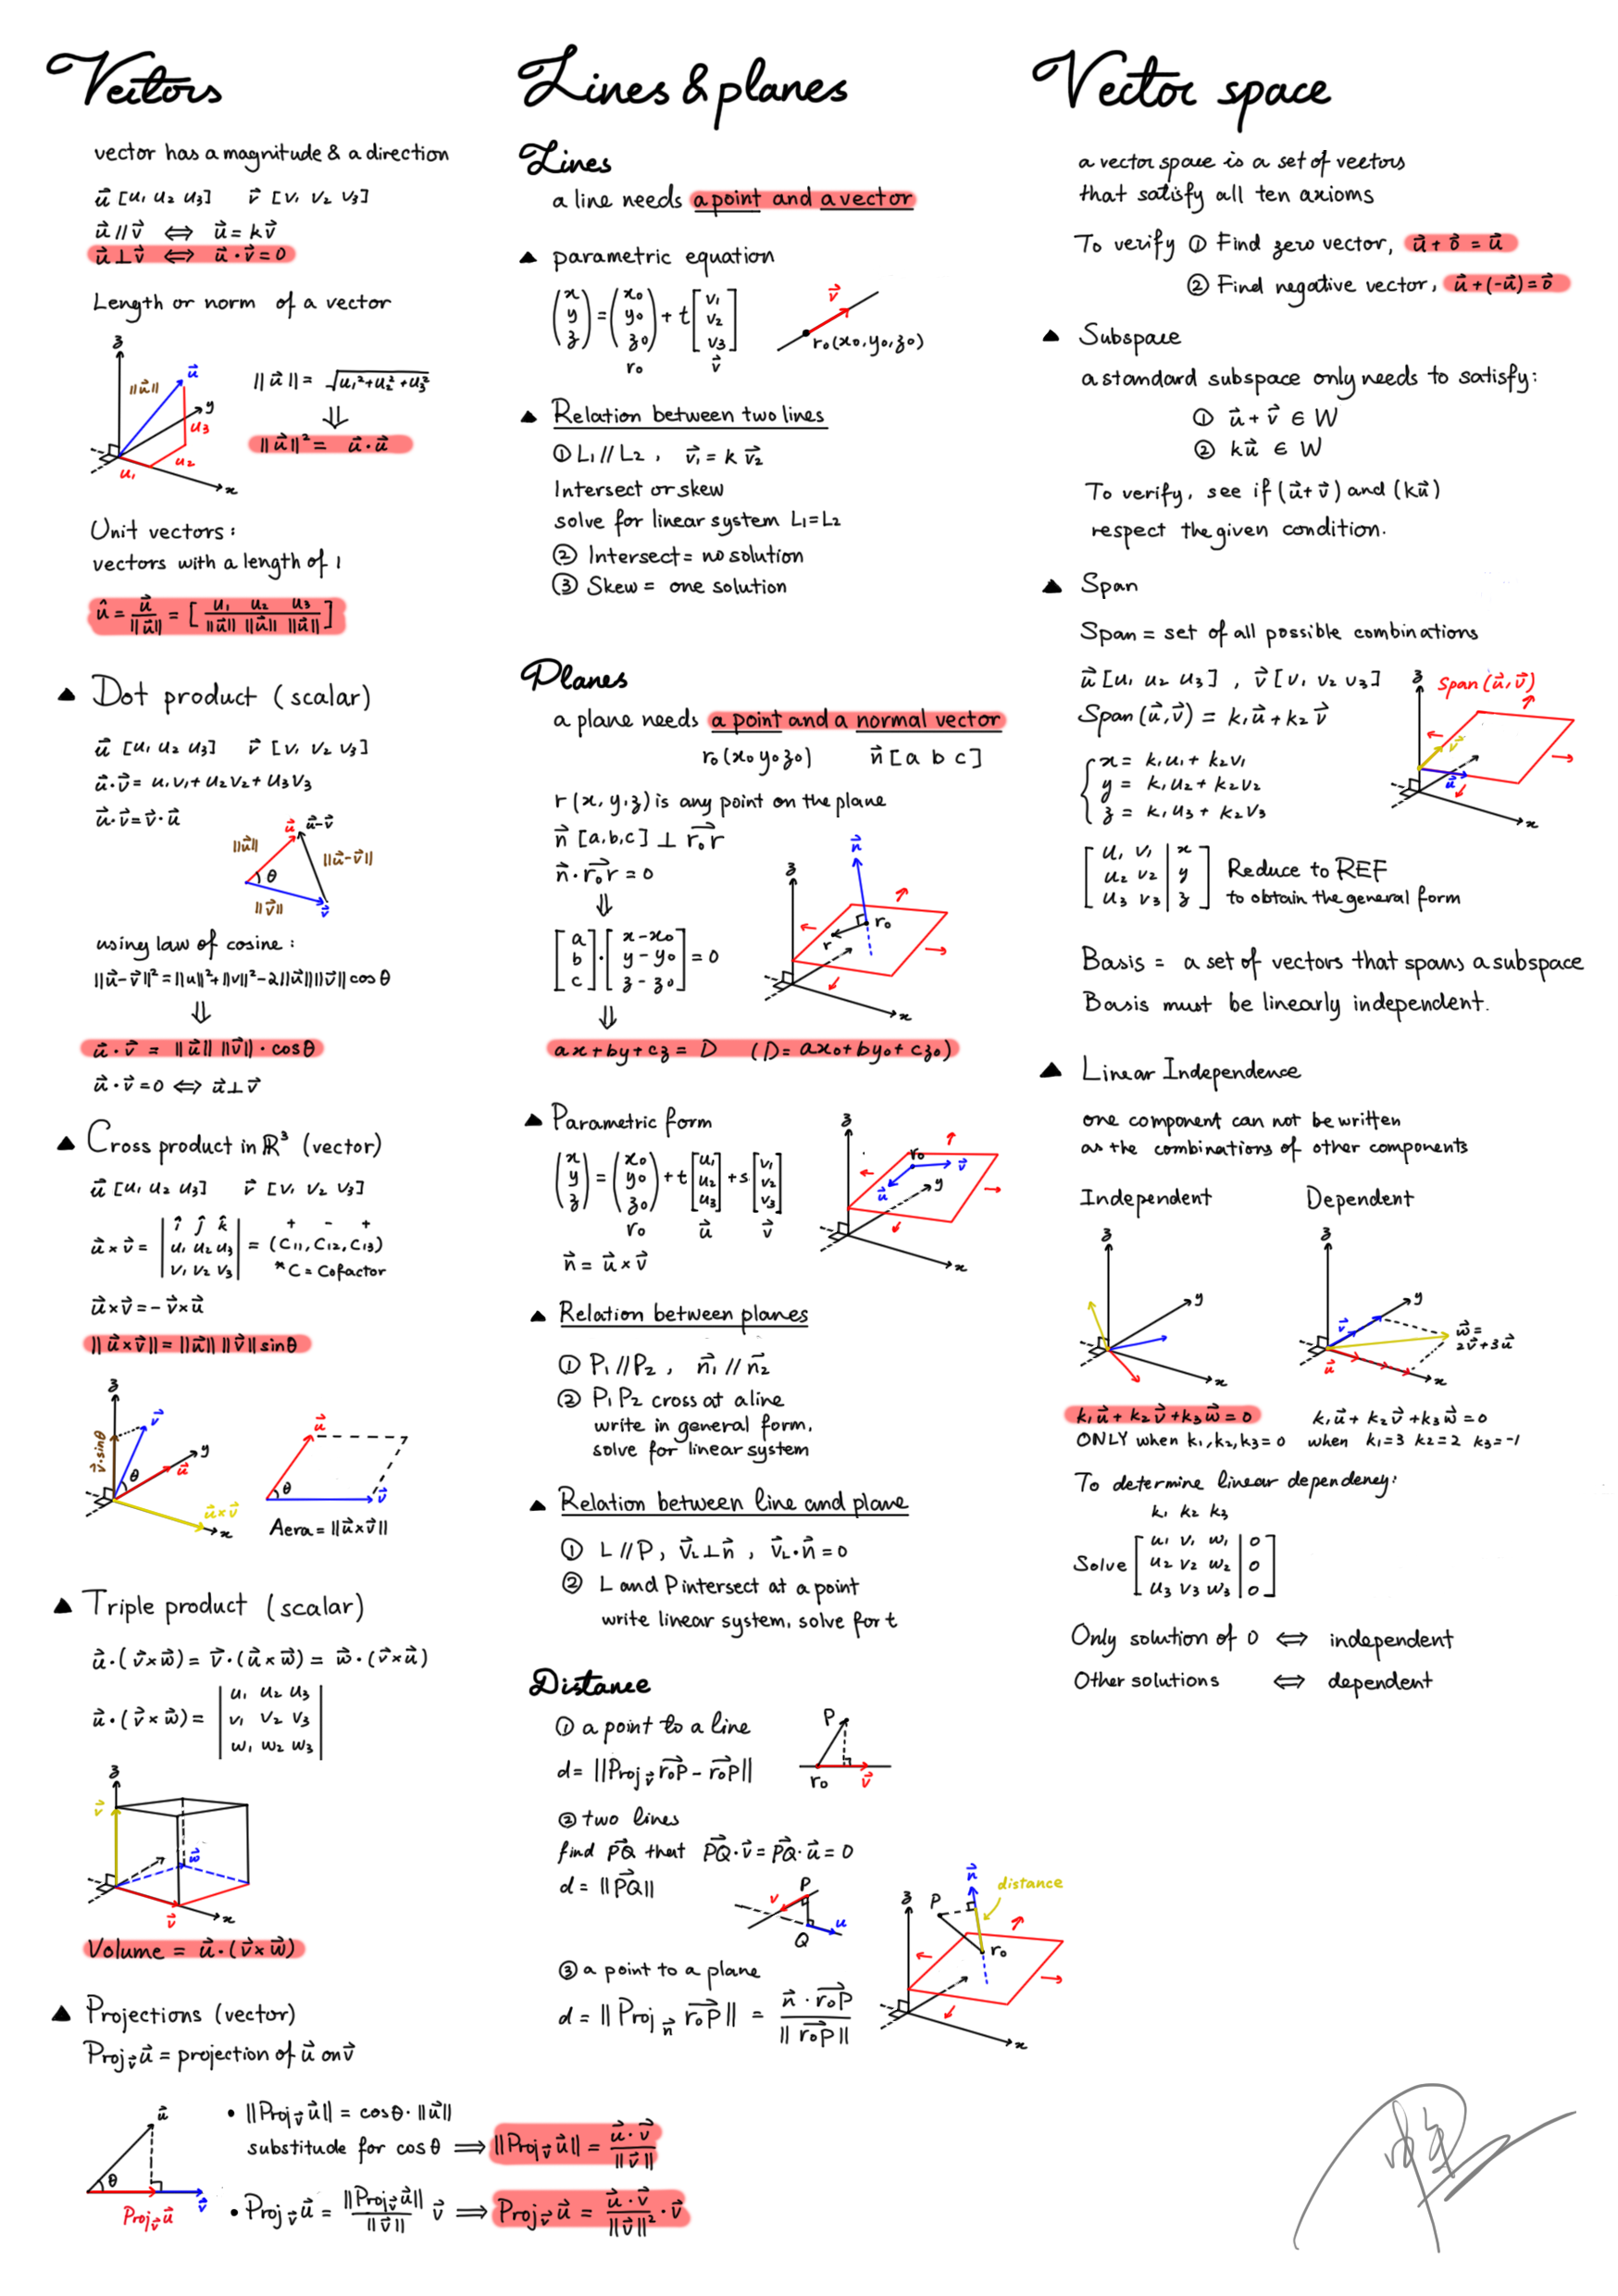 Vectors
vector has a magnitude & a direction
u⃗ [u₁ u₂ u₃] v⃗ [v₁ v₂ v₃]
u⃗ // v⃗ ⟺ u⃗ = kv⃗
u⃗ ⊥ v⃗ ⟺ u⃗ · v⃗ = 0
Length or norm of a vector
z
‖u⃗‖ u⃗
y
u₃
u₂
u₁
x
‖u⃗‖ = √u₁²+u₂²+u₃²
⇓
‖u⃗‖² = u⃗ · u⃗
Unit vectors:
vectors with a length of 1
û = u⃗/‖u⃗‖ = [u₁/‖u⃗‖ u₂/‖u⃗‖ u₃/‖u⃗‖]
▲ Dot product (scalar)
u⃗ [u₁ u₂ u₃] v⃗ [v₁ v₂ v₃]
u⃗·v⃗ = u₁v₁ + u₂v₂ + u₃v₃
u⃗·v⃗ = v⃗·u⃗
u⃗ u⃗-v⃗
‖u⃗‖ ‖u⃗-v⃗‖
θ
‖v⃗‖ v⃗
using law of cosine:
‖u⃗-v⃗‖² = ‖u‖²+‖v‖²-2‖u⃗‖‖v⃗‖cosθ
⇓
u⃗ · v⃗ = ‖u⃗‖ ‖v⃗‖ · cosθ
u⃗ · v⃗ = 0 ⟺ u⃗ ⊥ v⃗
▲ Cross product in ℝ³ (vector)
u⃗ [u₁ u₂ u₃] v⃗ [v₁ v₂ v₃]
î ĵ k̂ + - +
u⃗ × v⃗ = | u₁ u₂ u₃ | = (C₁₁, C₁₂, C₁₃)
v₁ v₂ v₃ *C = Cofactor
u⃗×v⃗ = - v⃗×u⃗
‖u⃗×v⃗‖ = ‖u⃗‖ ‖v⃗‖ sinθ
z
v⃗·sinθ v⃗
y
θ u⃗
u⃗×v⃗
x
u⃗
θ
v⃗
Aera = ‖u⃗×v⃗‖
▲ Triple product (scalar)
u⃗·(v⃗×w⃗) = v⃗·(u⃗×w⃗) = w⃗·(v⃗×u⃗)
u₁ u₂ u₃
u⃗·(v⃗×w⃗) = | v₁ v₂ v₃ |
w₁ w₂ w₃
z
v⃗
w⃗
x
v⃗
Volume = u⃗·(v⃗×w⃗)
▲ Projections (vector)
Proj v⃗ u⃗ = projection of u⃗ on v⃗
u⃗
θ
Proj v⃗ u⃗ v⃗
• ‖Proj v⃗ u⃗‖ = cosθ·‖u⃗‖
substitude for cosθ ⟹ ‖Proj v⃗ u⃗‖ = u⃗·v⃗/‖v⃗‖
• Proj v⃗ u⃗ = ‖Proj v⃗ u⃗‖/‖v⃗‖ v⃗ ⟹ Proj v⃗ u⃗ = u⃗·v⃗/‖v⃗‖² · v⃗
Lines & planes
Lines
a line needs a point and a vector
▲ parametric equation
(x y z) = (x₀ y₀ z₀) + t [v₁ v₂ v₃]
r₀ v⃗
v⃗
r₀(x₀, y₀, z₀)
▲ Relation between two lines
① L₁ // L₂ , v⃗₁ = k v⃗₂
Intersect or skew
solve for linear system L₁=L₂
② Intersect = no solution
③ Skew = one solution
Planes
a plane needs a point and a normal vector
r₀(x₀ y₀ z₀) n⃗ [a b c]
r (x, y, z) is any point on the plane
n⃗ [a, b, c] ⊥ r₀r⃗
n⃗ · r₀r⃗ = 0
⇓
[a b c] · [x-x₀ y-y₀ z-z₀] = 0
⇓
z
n⃗
r₀
r
x
ax+by+cz = D (D = ax₀+by₀+cz₀)
▲ Parametric form
(x y z) = (x₀ y₀ z₀) + t [u₁ u₂ u₃] + s [v₁ v₂ v₃]
r₀ u⃗ v⃗
n⃗ = u⃗ × v⃗
z
r₀
v⃗
u⃗
y
x
▲ Relation between planes
① P₁ // P₂ , n⃗₁ // n⃗₂
② P₁ P₂ cross at a line
write in general form,
solve for linear system
▲ Relation between line and plane
① L // P, v⃗L ⊥ n⃗ , v⃗L · n⃗ = 0
② L and P intersect at a point
write linear system, solve for t
Distance
① a point to a line
d = ‖Proj v⃗ r₀P⃗ - r₀P⃗‖
P
r₀ v⃗
② two lines
find PQ⃗ that PQ⃗·v⃗ = PQ⃗·u⃗ = 0
d = ‖PQ⃗‖
P
v
u
Q
③ a point to a plane
d = ‖Proj n⃗ r₀P⃗‖ = n⃗ · r₀P⃗/‖r₀P⃗‖
n⃗
distance
z
P
r₀
x
Vector space
a vector space is a set of vectors
that satisfy all ten axioms
To verify ① Find zero vector, u⃗ + 0⃗ = u⃗
② Find negative vector, u⃗ + (-u⃗) = 0⃗
▲ Subspace
a standard subspace only needs to satisfy:
① u⃗ + v⃗ ∈ W
② ku⃗ ∈ W
To verify, see if (u⃗+v⃗) and (ku⃗)
respect the given condition.
▲ Span
Span = set of all possible combinations
u⃗ [u₁ u₂ u₃] , v⃗ [v₁ v₂ v₃]
Span(u⃗,v⃗) = k₁u⃗ + k₂v⃗
x = k₁u₁ + k₂v₁
y = k₁u₂ + k₂v₂
z = k₁u₃ + k₂v₃
z
Span(u⃗,v⃗)
v⃗
u⃗
x
u₁ v₁ | x
u₂ v₂ | y
u₃ v₃ | z
Reduce to REF
to obtain the general form
Basis = a set of vectors that spans a subspace
Basis must be linearly independent.
▲ Linear Independence
one component can not be written
as the combinations of other components
Independent Dependent
z
y
x
z
y
v⃗
w⃗ =
2v⃗+3u⃗
u⃗
x
k₁u⃗ + k₂v⃗ + k₃w⃗ = 0 k₁u⃗ + k₂v⃗ + k₃w⃗ = 0
ONLY when k₁,k₂,k₃ = 0 when k₁=3 k₂=2 k₃=-1
To determine linear dependency:
k₁ k₂ k₃
u₁ v₁ w₁ | 0
Solve u₂ v₂ w₂ | 0
u₃ v₃ w₃ | 0
Only solution of 0 ⟺ independent
Other solutions ⟺ dependent